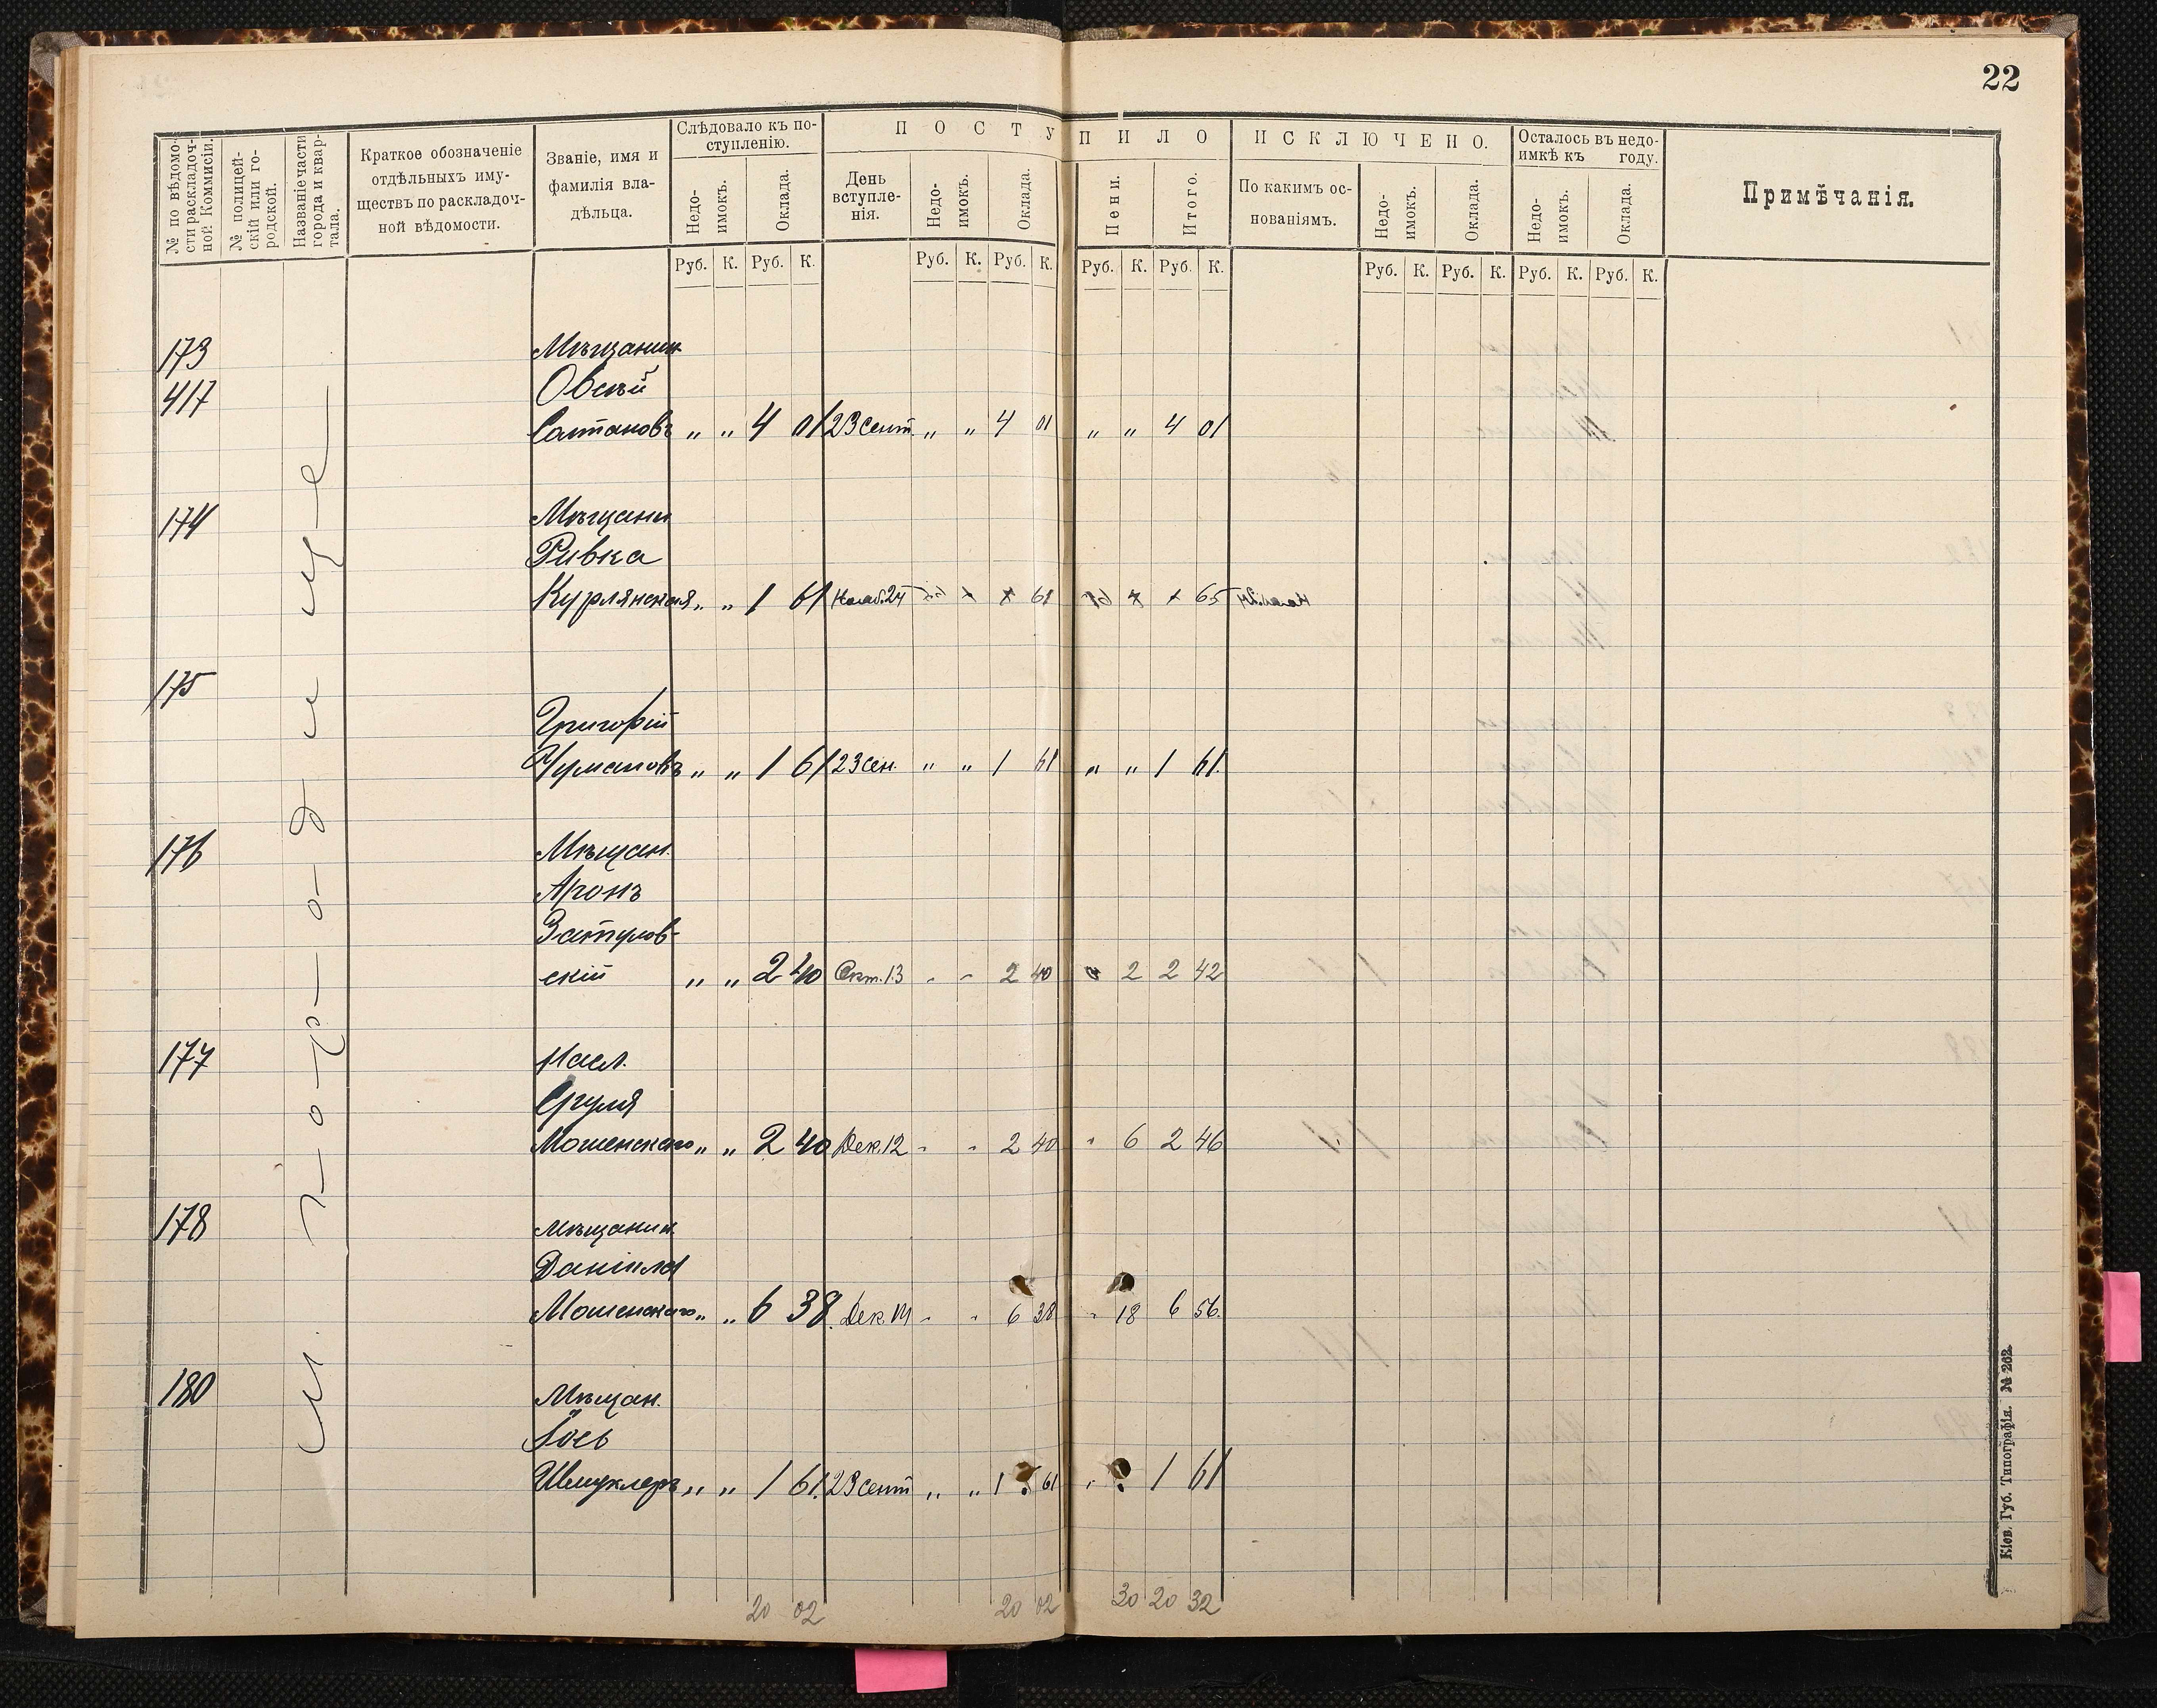 22
№ по вѣдомости раскладочной Коммисіи.
№ полицейскій или городской.
Названіе части города и квартала.
Краткое обозначеніе отдѣльныхъ имуществъ по раскладочной вѣдомости.
Званіе, имя и фамилія владѣльца.
Слѣдовало къ поступленію.
Недоимокъ. Оклада.
ПОСТУПИЛО
День вступленія. Недоимокъ. Оклада. Пени. Итого.
ИСКЛЮЧЕНО.
По какимъ основаніямъ. Недоимокъ. Оклада.
Осталось въ недоимкѣ къ году.
Недоимокъ. Оклада.
Примѣчанія.
Руб. К. Руб. К. Руб. К. Руб. К. Руб. К. Руб. К. Руб. К. Руб. К. Руб. К. Руб. К.
173 Мѣщанин
417 Овсѣй
„ „ 4 01 23 сент. „ „ 4 01 „ „ 4 01
174 Мѣщани
Ривка
Курлянская „ „ 1 61 Нояб. 24
175
Григорій
Чумаковъ „ „ 1 61 23 сен. „ „ 1 61 „ „ 1 61
176 Мѣщан.
Аронъ
Затулов-
скій „ „ 2 40 Окт. 13 - - 2 40 2 2 42
177 Насл.
Сруля
Мошенскаго „ „ 2 40 Дек. 12 - - 2 40 - 6 2 46
178 Мѣщанин.
Даніила
Мошенскаго „ „ 6 38 Дек - - 6 38 - 18 6 56
180 Мѣщан.
Іось
Шмуклеръ „ „ 1 61 23 сент „ „ 1 61 1 61
20 02 20 02 30 20 32
м. Городище
Кіев. Губ. Типографія. № 262.